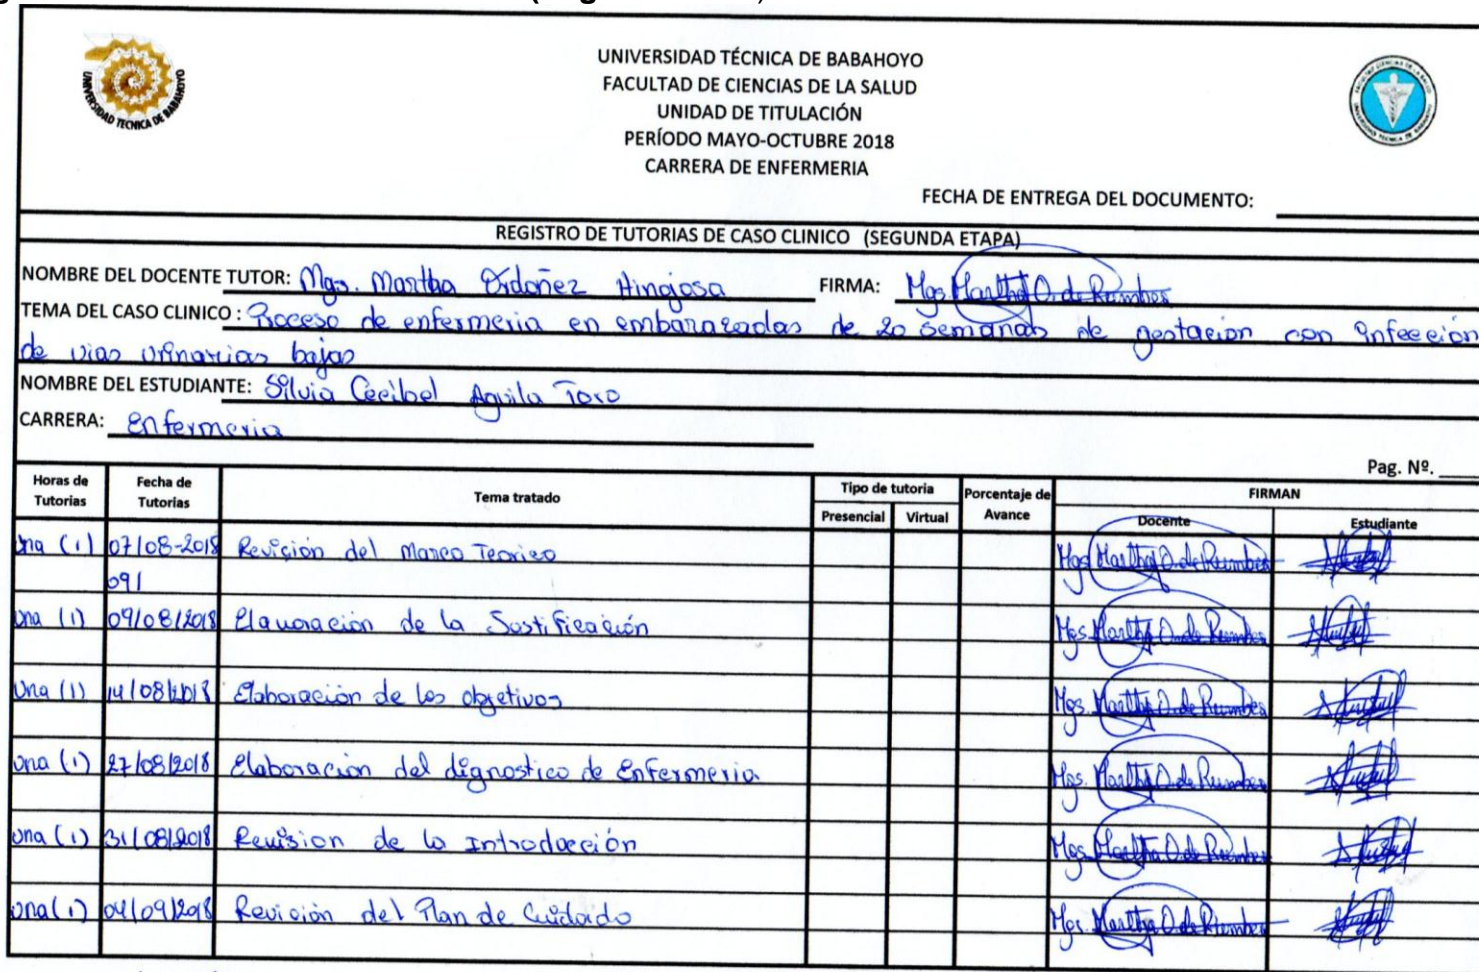 UNIVERSIDAD TÉCNICA DE BABAHOYO
FACULTAD DE CIENCIAS DE LA SALUD
UNIDAD DE TITULACIÓN
PERÍODO MAYO-OCTUBRE 2018
CARRERA DE ENFERMERIA
UNIVERSIDAD TECNICA DE BABAHOYO
FECHA DE ENTREGA DEL DOCUMENTO:
REGISTRO DE TUTORIAS DE CASO CLINICO (SEGUNDA ETAPA)
NOMBRE DEL DOCENTE TUTOR: Mgs. Martha Ordoñez Hinojosa FIRMA: Mgs Martha O. de Rumbea
TEMA DEL CASO CLINICO : Proceso de enfermeria en embarazadas de 20 semanas de gestación con infección
de vias urinarias bajas
NOMBRE DEL ESTUDIANTE: Silvia Cecibel Aguila Toro
CARRERA: Enfermeria
Pag. Nº.
Horas de Tutorias Fecha de Tutorias Tema tratado Tipo de tutoria Porcentaje de Avance FIRMAN
Presencial Virtual Docente Estudiante
una (1) 07/08-2018 Revisión del Marco Teorico Mgs Martha O. de Rumbea
091
una (1) 09/08/2018 Elavoración de la Justificación Mgs. Martha O. de Rumbea
una (1) 14/08/2018 Elaboración de los objetivos Mgs. Martha O. de Rumbea
una (1) 27/08/2018 Elaboración del dignostico de Enfermeria Mgs. Martha O. de Rumbea
una (1) 31/08/2018 Revision de la Introducción Mgs. Martha O. de Rumbea
una (1) 04/09/2018 Revisión del Plan de Cuidado Mgs. Martha O. de Rumbea